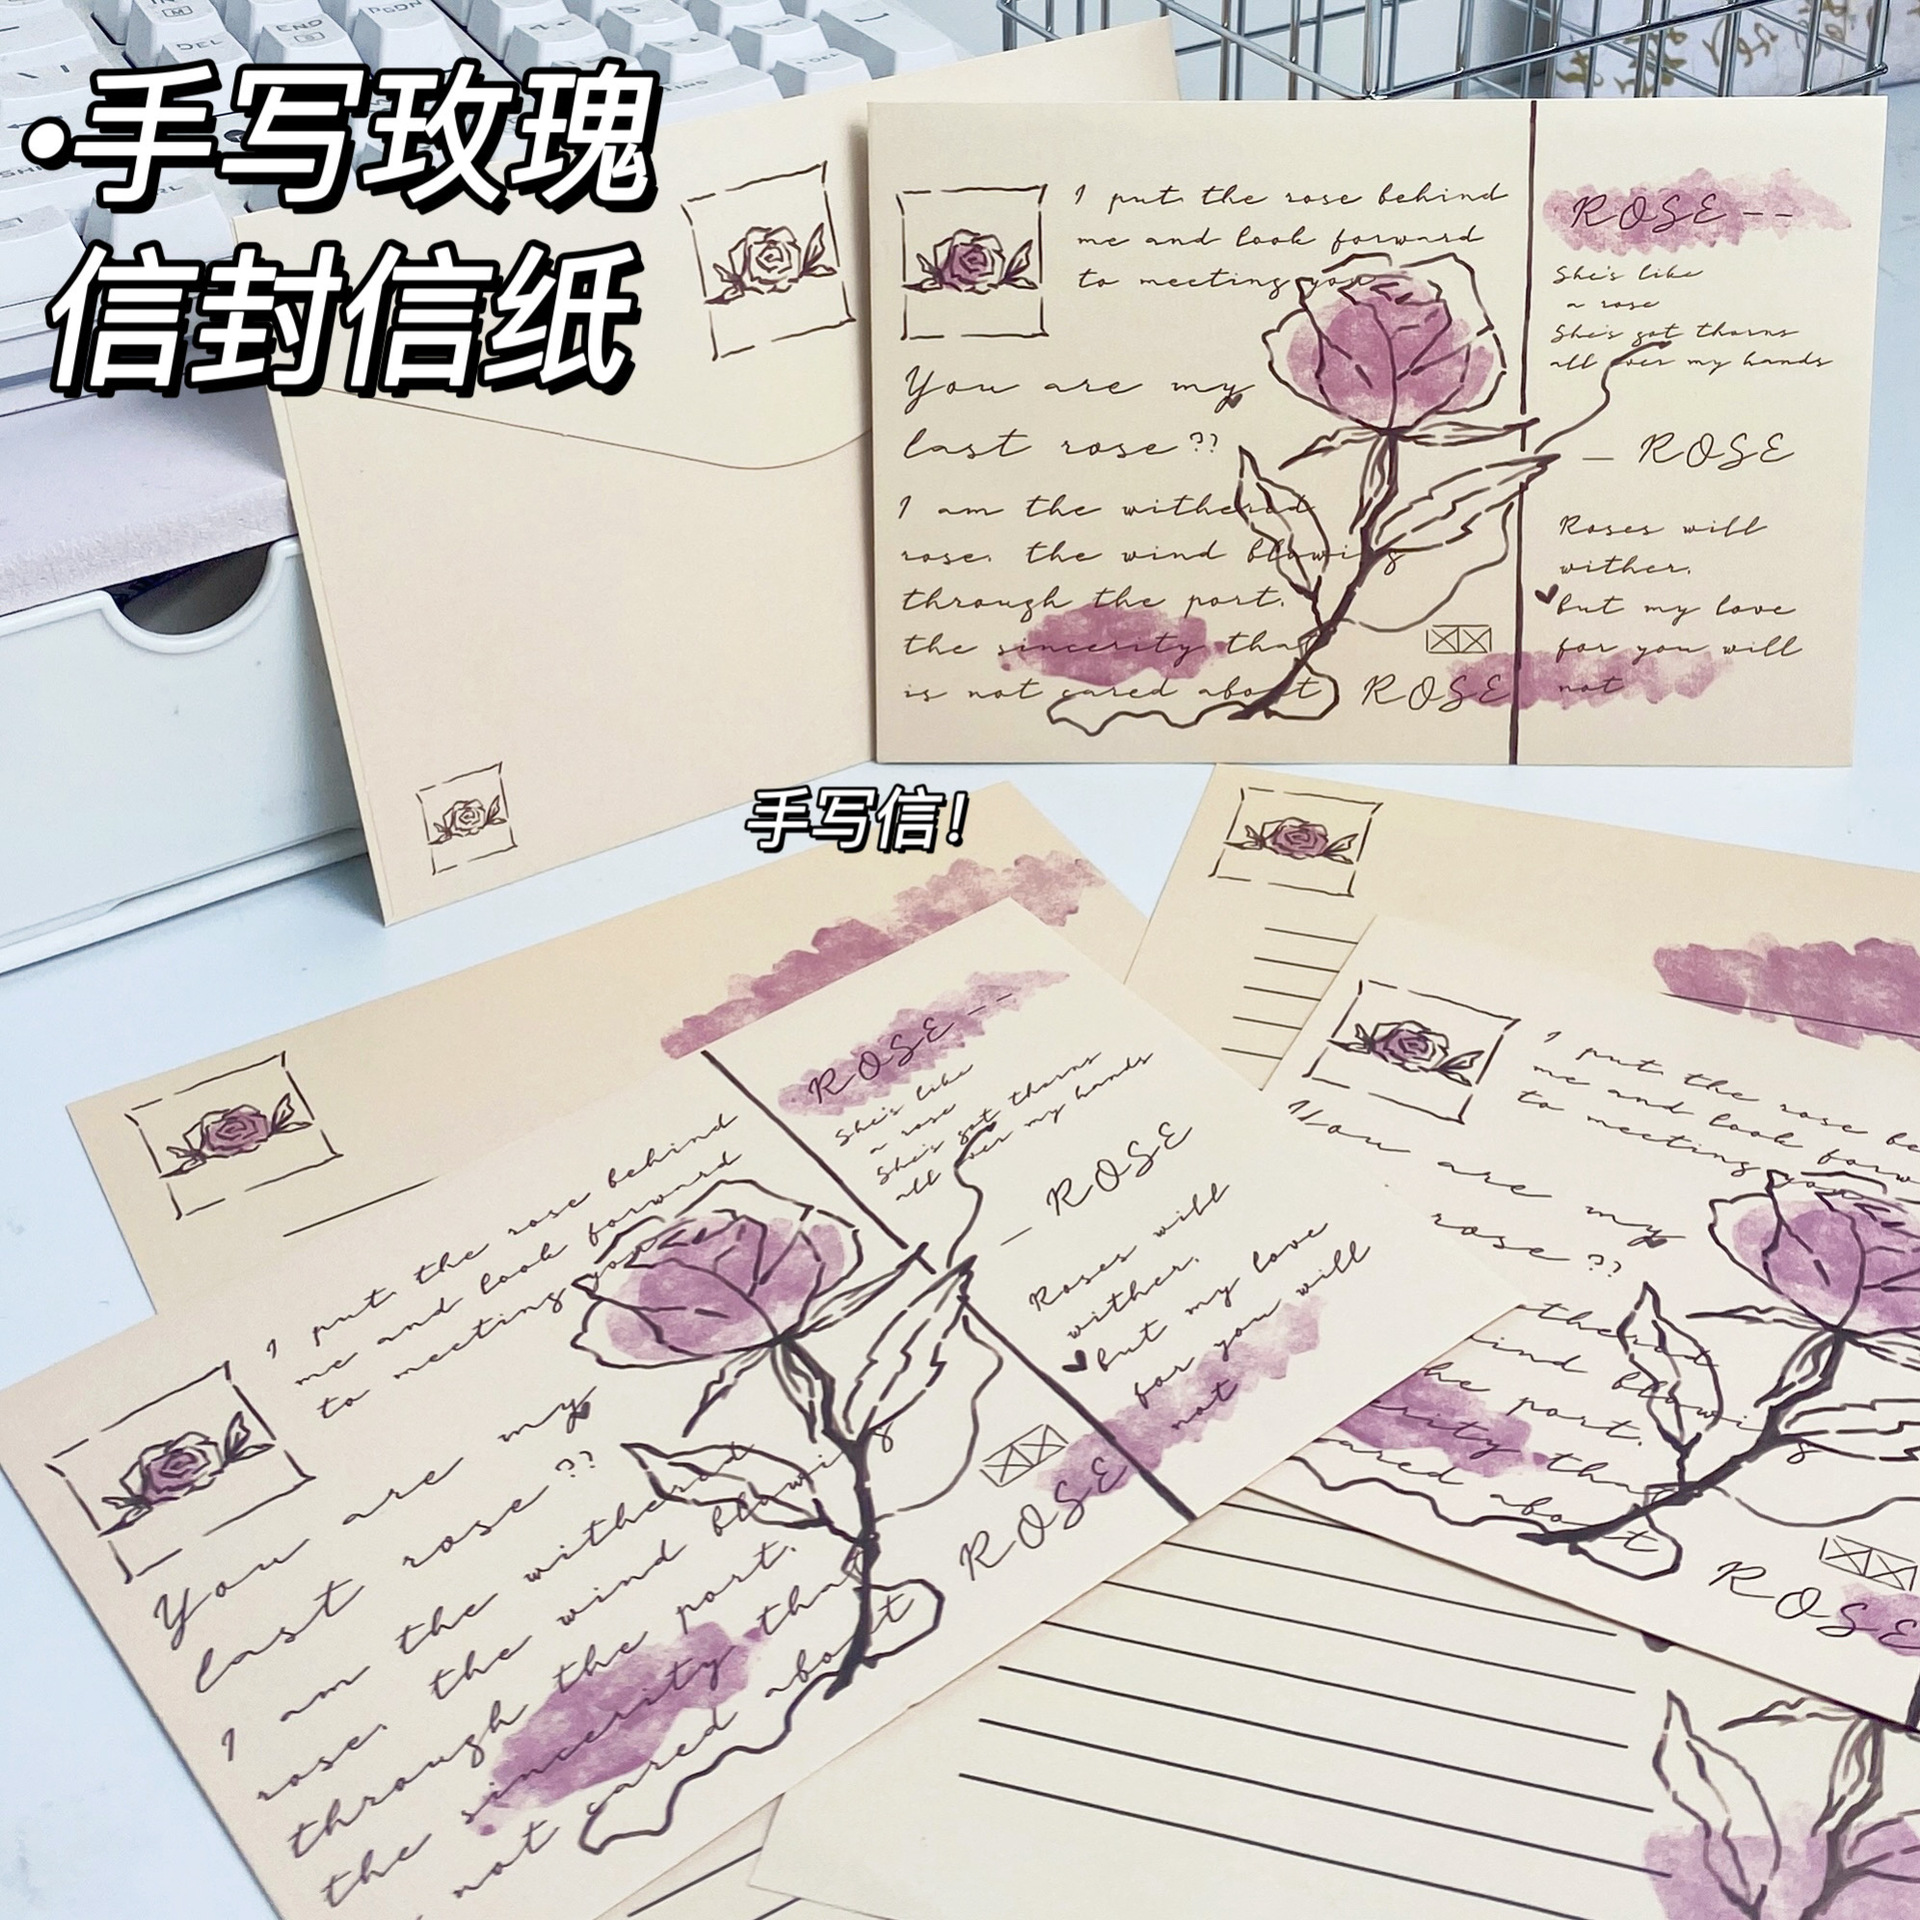 ·手写玫瑰
信封信纸
I put the rose behind
me and look forward
to meeting you
You are my
last rose??
I am the withered
rose. the wind blowing
through the port.
the sincerity that
is not cared about
ROSE
ROSE--
She's like
a rose
She's got thorns
all over my hands
— ROSE
Roses will
wither.
but my love
for you will
not
手写信!
I put the rose behind
me and look forward
to meeting you
You are my
last rose??
I am the withered
rose. the wind blowing
through the port.
the sincerity that
not cared about
ROSE
ROSE--
She's like
a rose
She's got thorns
all over my hands
— ROSE
Roses will
wither.
but my love
for you will
not
I put the rose be
me and look forw
to meeting you
You are my
rose??
withered
wind blowing
the port.
that
cared about
ROSE
DEL
END
PGDN